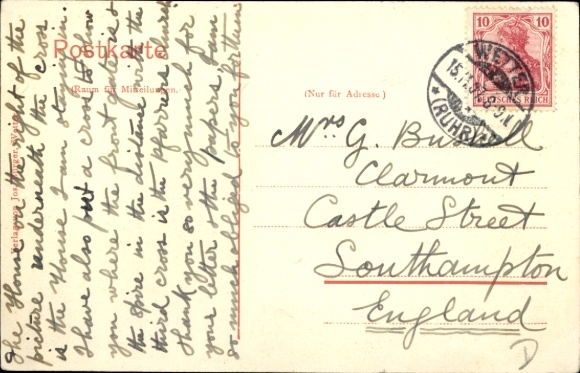 Postkarte
(Raum für Mitteilungen.)
(Nur für Adresse.)
10 10
DEUTSCHES REICH
WETTER
(RUHR)
The House on the right of the
picture underneath the cross
is the House I am staying in.
I have also put a cross to show
you where the front garden is
the spire in the distance with the
third cross is the pfarreres church
thank you so very much for
your letter & the papers, I am
so much obliged to you for them
Mrs G. Burzell
Clarmont
Castle Street
Southampton
England
D